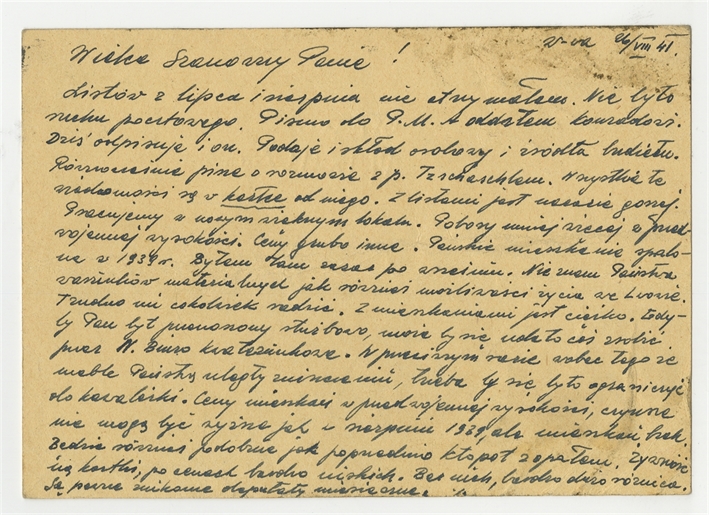 W-wa 26/VIII 41.
Wielce Szanowny Panie !
Listów z lipca i sierpnia nie otrzymałem. Nie było
ruchu pocztowego. Pismo do P.M. A oddałem Konradowi.
Dziś odpisuje i on. Podaje i skład osobowy i źródła budżetu.
Równocześnie pisze o rozmowie z p. Tzschaschlem. Wszystkie te
wiadomości są w kartce od niego. Z listami jest na razie gorzej.
Pracujemy w nowym pięknym lokalu. Pobory mniej więcej w przed-
wojennej wysokości. Ceny grubo inne. Pańskie mieszkanie spalo-
ne w 1939 r. Byłem tam zaraz po wrześniu. Nie znam Państwa
warunków materialnych jak również możliwości życia we Lwowie.
Trudno mi cokolwiek radzić. Z mieszkaniami jest ciężko. Gdy-
by Pan był przenoszony służbowo, może by się udało coś zrobić
przez N. Biuro Kwaterunkowe. W przeciwnym razie wobec tego że
meble Pańskie uległy zniszczeniu, trzeba by się było ograniczyć
do kawalerki. Ceny mieszkań w przedwojennej wysokości, czynsze
nie mogą być wyższe jak w sierpniu 1939, ale mieszkań brak.
Będzie również podobnie jak poprzednio kłopot z opałem. Żywność
na kartki, po cenach bardzo niskich. Bez nich, bardzo duża różnica.
Są pewne znikome deputaty miesięczne.